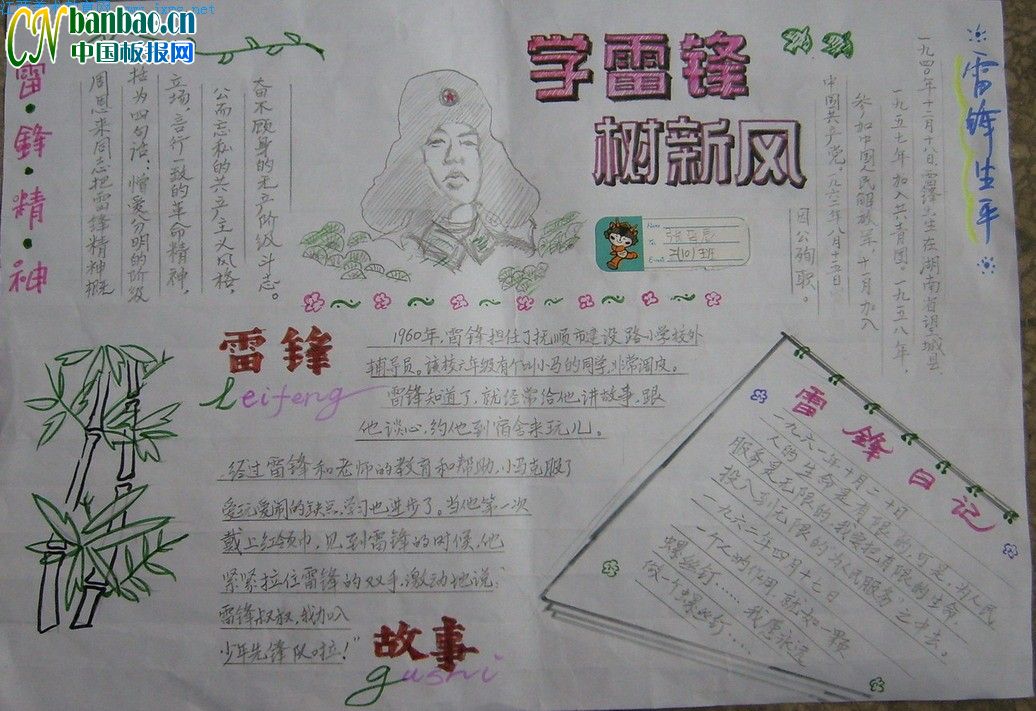 banbao.cn
中国板报网
学雷锋
树新风
雷·鋒·精·神
周恩来同志把雷锋精神概
括为四句话：憎爱分明的阶级
立场、言行一致的革命精神，
公而忘私的共产主义风格，
奋不顾身的无产阶级斗志。
雷锋生平
一九四〇年十二月十八日，雷锋出生在湖南省望城县，
一九五七年加入共青团。一九五八年，
参加中国人民解放军。十一月加入
中国共产党。一九六二年八月十五日
因公殉职。
Name
To
2(10)班
E-mail
雷锋
leifeng
1960年，雷锋担任了抚顺市建设路小学校外
辅导员。该校六年级有个叫小马的同学，非常调皮。
雷锋知道了，就经常给他讲故事，跟
他谈心，约他到宿舍来玩儿。
经过雷锋和老师的教育和帮助，小马克服了
爱玩爱闹的缺点，学习也进步了。当他第一次
戴上红领巾，见到雷锋的时候，他
紧紧拉住雷锋的双手，激动地说：
雷锋叔叔，我加入
少年先锋队啦！”
故事
gushi
雷锋日记
一九六一年十月二十日
人的生命是有限的，可是，为人民
服务是无限的，我要把有限的生命，
投入到无限的“为人民服务”之中去。
一九六二年四月十七日
一个人的作用，就如一颗
螺丝钉……我愿永远
做一个螺丝钉……